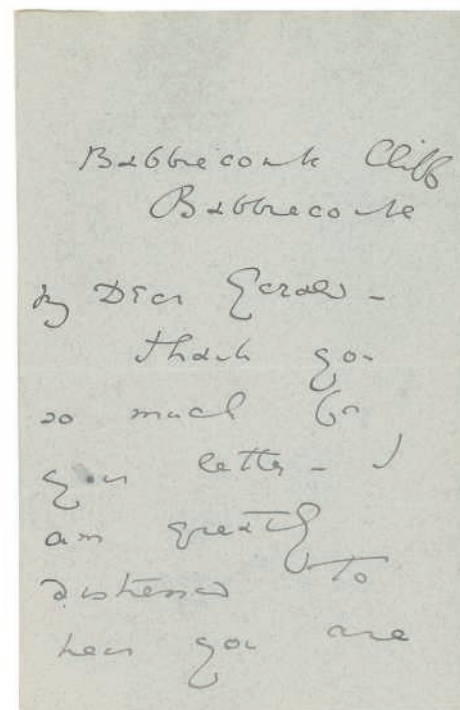 Babbacombe Cliff
Babbacombe
My Dear Gerald –
Thank you
so much for
your letter – I
am greatly
distressed to
hear you are